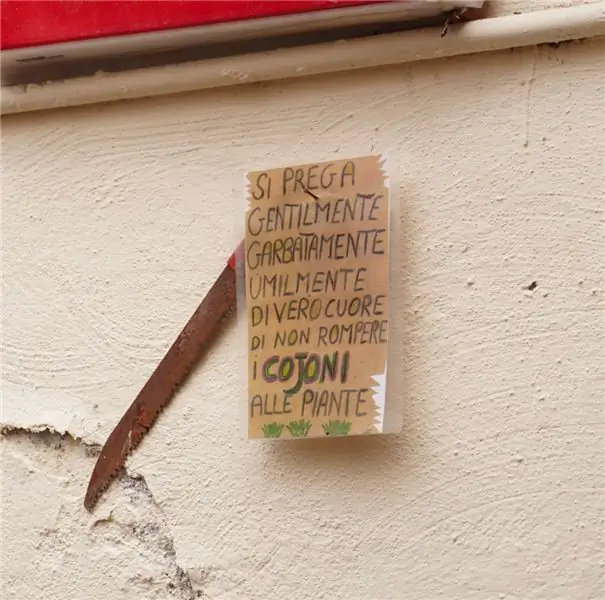 SI PREGA
GENTILMENTE
GARBATAMENTE
UMILMENTE
DI VERO CUORE
DI NON ROMPERE
I COJONI
ALLE PIANTE